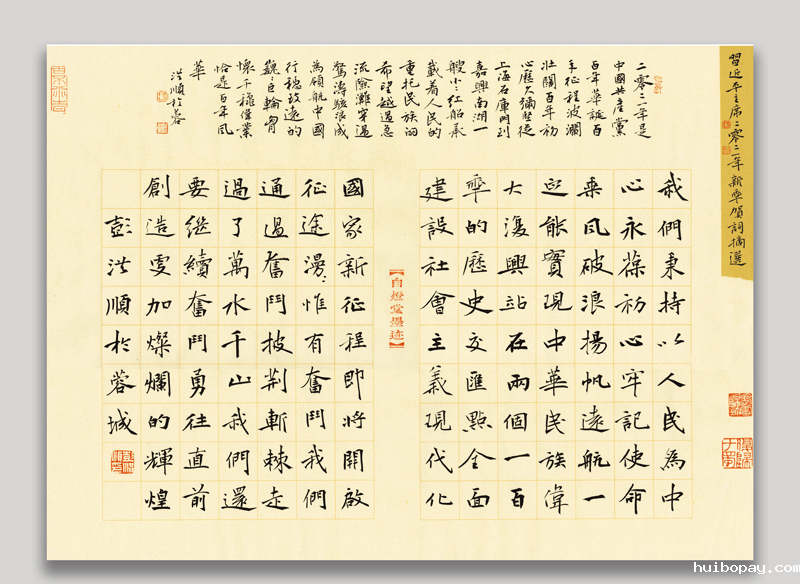 習近平主席二零二一年新年賀詞摘選
二零二一年是
中國共產黨
百年華誕百
年征程波瀾
壯闊百年初
心歷久彌堅從
上海石庫門到
嘉興南湖一
艘小〻紅船承
載着人民的
重托民族的
希望越過急
流險灘穿過
驚濤駭浪成
為領航中國
行穩致遠的
巍〻巨輪胸
懷千秋偉業
恰是百年風
華
洪順於蓉
我們秉持以人民為中
心永葆初心牢記使命
乘風破浪揚帆遠航一
定能實現中華民族偉
大復興站在兩個一百
年的歷史交匯點全面
建設社會主義現代化
【自燈堂墨迹】
國家新征程即將開啟
征途漫〻惟有奮鬥我們
通過奮鬥披荊斬棘走
過了萬水千山我們還
要繼續奮鬥勇往直前
創造更加燦爛的輝煌
彭洪順於蓉城
huibopay.com